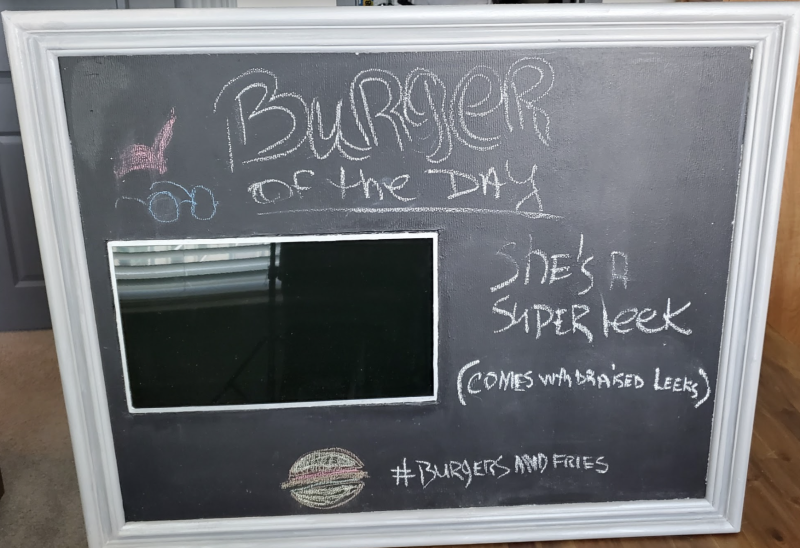 BURGER
OF the DAY
SHE'S A
SUPER leek
(COMES WITH BRAISED LEEKS)
#BURGERS AND FRIES